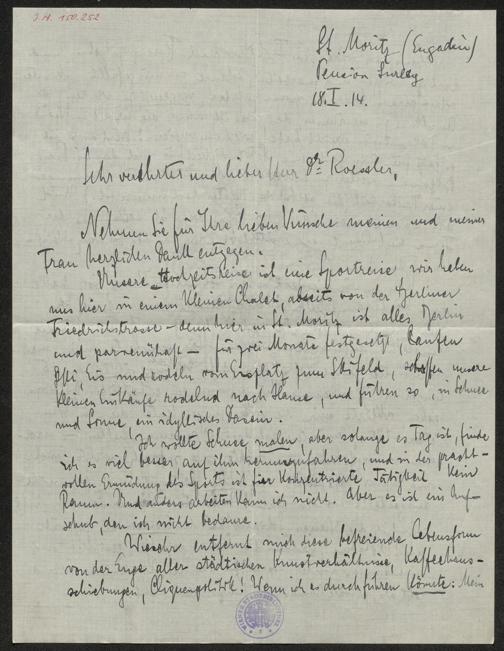 J.N. 150.252
St. Moritz (Engadin)
Pension Surley
18.I.14.
Sehr verehrter und lieber Herr Dr Roessler,
Nehmen Sie für Ihre lieben Wünsche meinen und meiner
Frau herzlichen Dank entgegen.
Unsere Hochzeitsreise ist eine Sportreise, wir haben
uns hier in einem kleinen Chalet, abseits von der Berliner
Friedrichstrasse – denn hier in St. Moritz ist alles Berlin
und parvenühaft – für zwei Monate festgesetzt, laufen
Ski, Eis und rodeln vom Eisplatz zum Skifeld, schaffen unsere
kleinen Einkäufe rodelnd nach Hause, und führen so, in Schnee
und Sonne, ein idyllisches Dasein.
Ich wollte Schnee malen, aber solange es Tag ist, finde
ich es viel besser, auf ihm herumzufahren, und in der pracht-
vollen Ermüdung des Sports ist für konzentrierte Tätigkeit kein
Raum. Und anders arbeiten kann ich nicht. Aber es ist ein Auf-
schub, den ich nicht bedaure.
Wie sehr entfernt mich diese befreiende Lebensform
von der Enge aller städtischen Kunstverhältnisse, Kaffeehaus-
schiebungen, Cliquenpolitik! Wenn ich es durchführen könnte: Mein